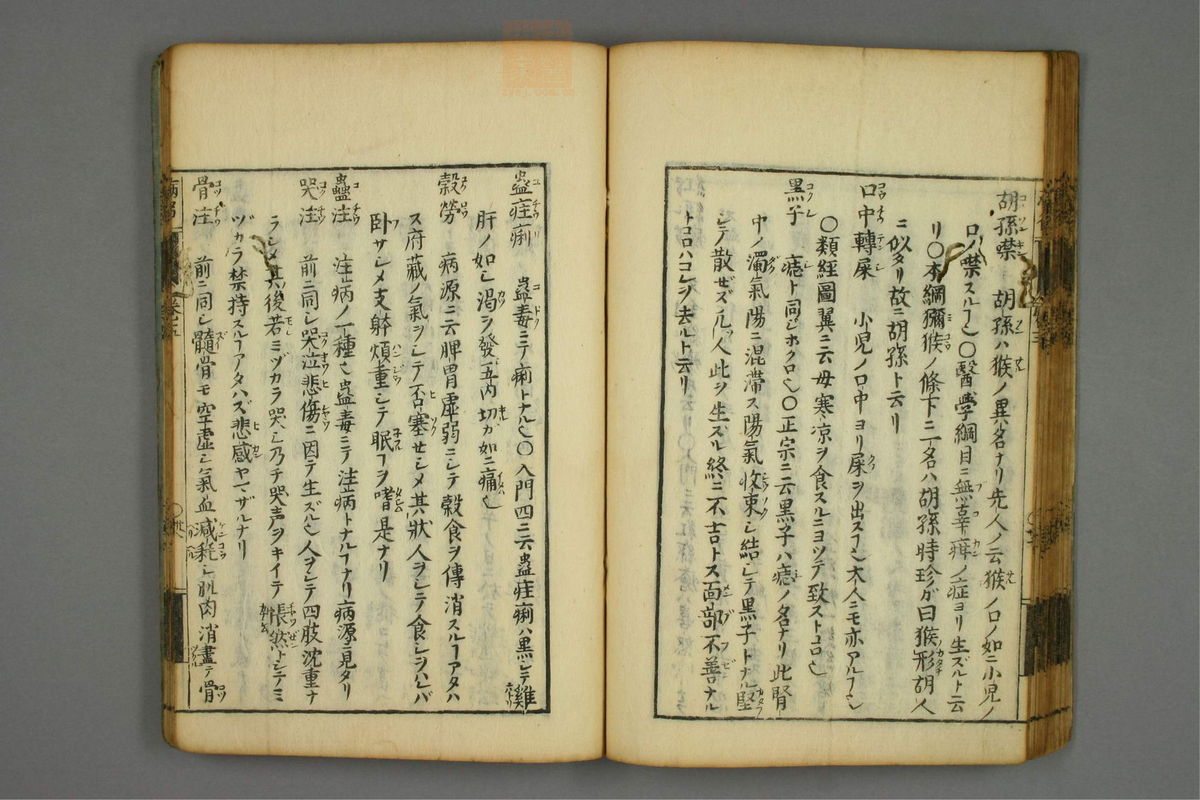 胡孫噤 胡孫ハ猴ノ異名ナリ先人ノ云猴ノ口ノ如ニ小児ノ
口ノ禁スルヿ也〇醫學綱目ニ無辜疳ノ症ヨリ生ズルト云
リ〇本綱獼猴ノ條下ニ一名ハ胡孫時珍ガ曰猴形胡人
ニ似タリ故ニ胡孫ト云リ
口中轉屎 小児ノ口中ヨリ屎ヲ出スヿ也大人ニモ亦アルヿ也
〇類經圖翼ニ云毋寒凉ヲ食スルニヨツテ致ストコロ也
黒子 痣ト同シホクロ也〇正宗ニ云黒子ハ痣ノ名ナリ此腎
中ノ濁氣陽ニ混滞ス陽氣收束シ結シテ黒子トナル堅
シテ散ゼズ凡人此ヲ生ズル終ニ不吉トス面部不善ナル
トコロハコレヲ去ルト云リ
蠱疰痢 蠱毒ニテ痢トナル也〇入門四ニ云蠱疰痢ハ黒シテ雞
肝ノ如シ渇ヲ發シ五内切ガ如ニ痛也
穀勞 病源ニ云脾胃虚弱ニシテ穀食ヲ傳消スルヿアタハ
ス府藏ノ氣ヲシテ否塞セシメ其狀人ヲシテ食シヲハレバ
卧サシメ支躰煩重シテ眠ヿヲ嗜是ナリ
蠱注 注病ノ一種也蠱毒ニテ注病トナルヿナリ病源ニ見タリ
哭注 前ニ同シ哭泣悲傷ニ因テ生ズル也人ヲシテ四肢沈重ナ
ラシメ其後若ミヅカラ哭シ乃チ哭声ヲキイテ悵然トシテミ
ヅカラ禁持スルヿアタハズ悲感ヤマザルナリ
骨注 前ニ同シ髓骨モ空虚シ氣血減耗シ肌肉消盡テ骨